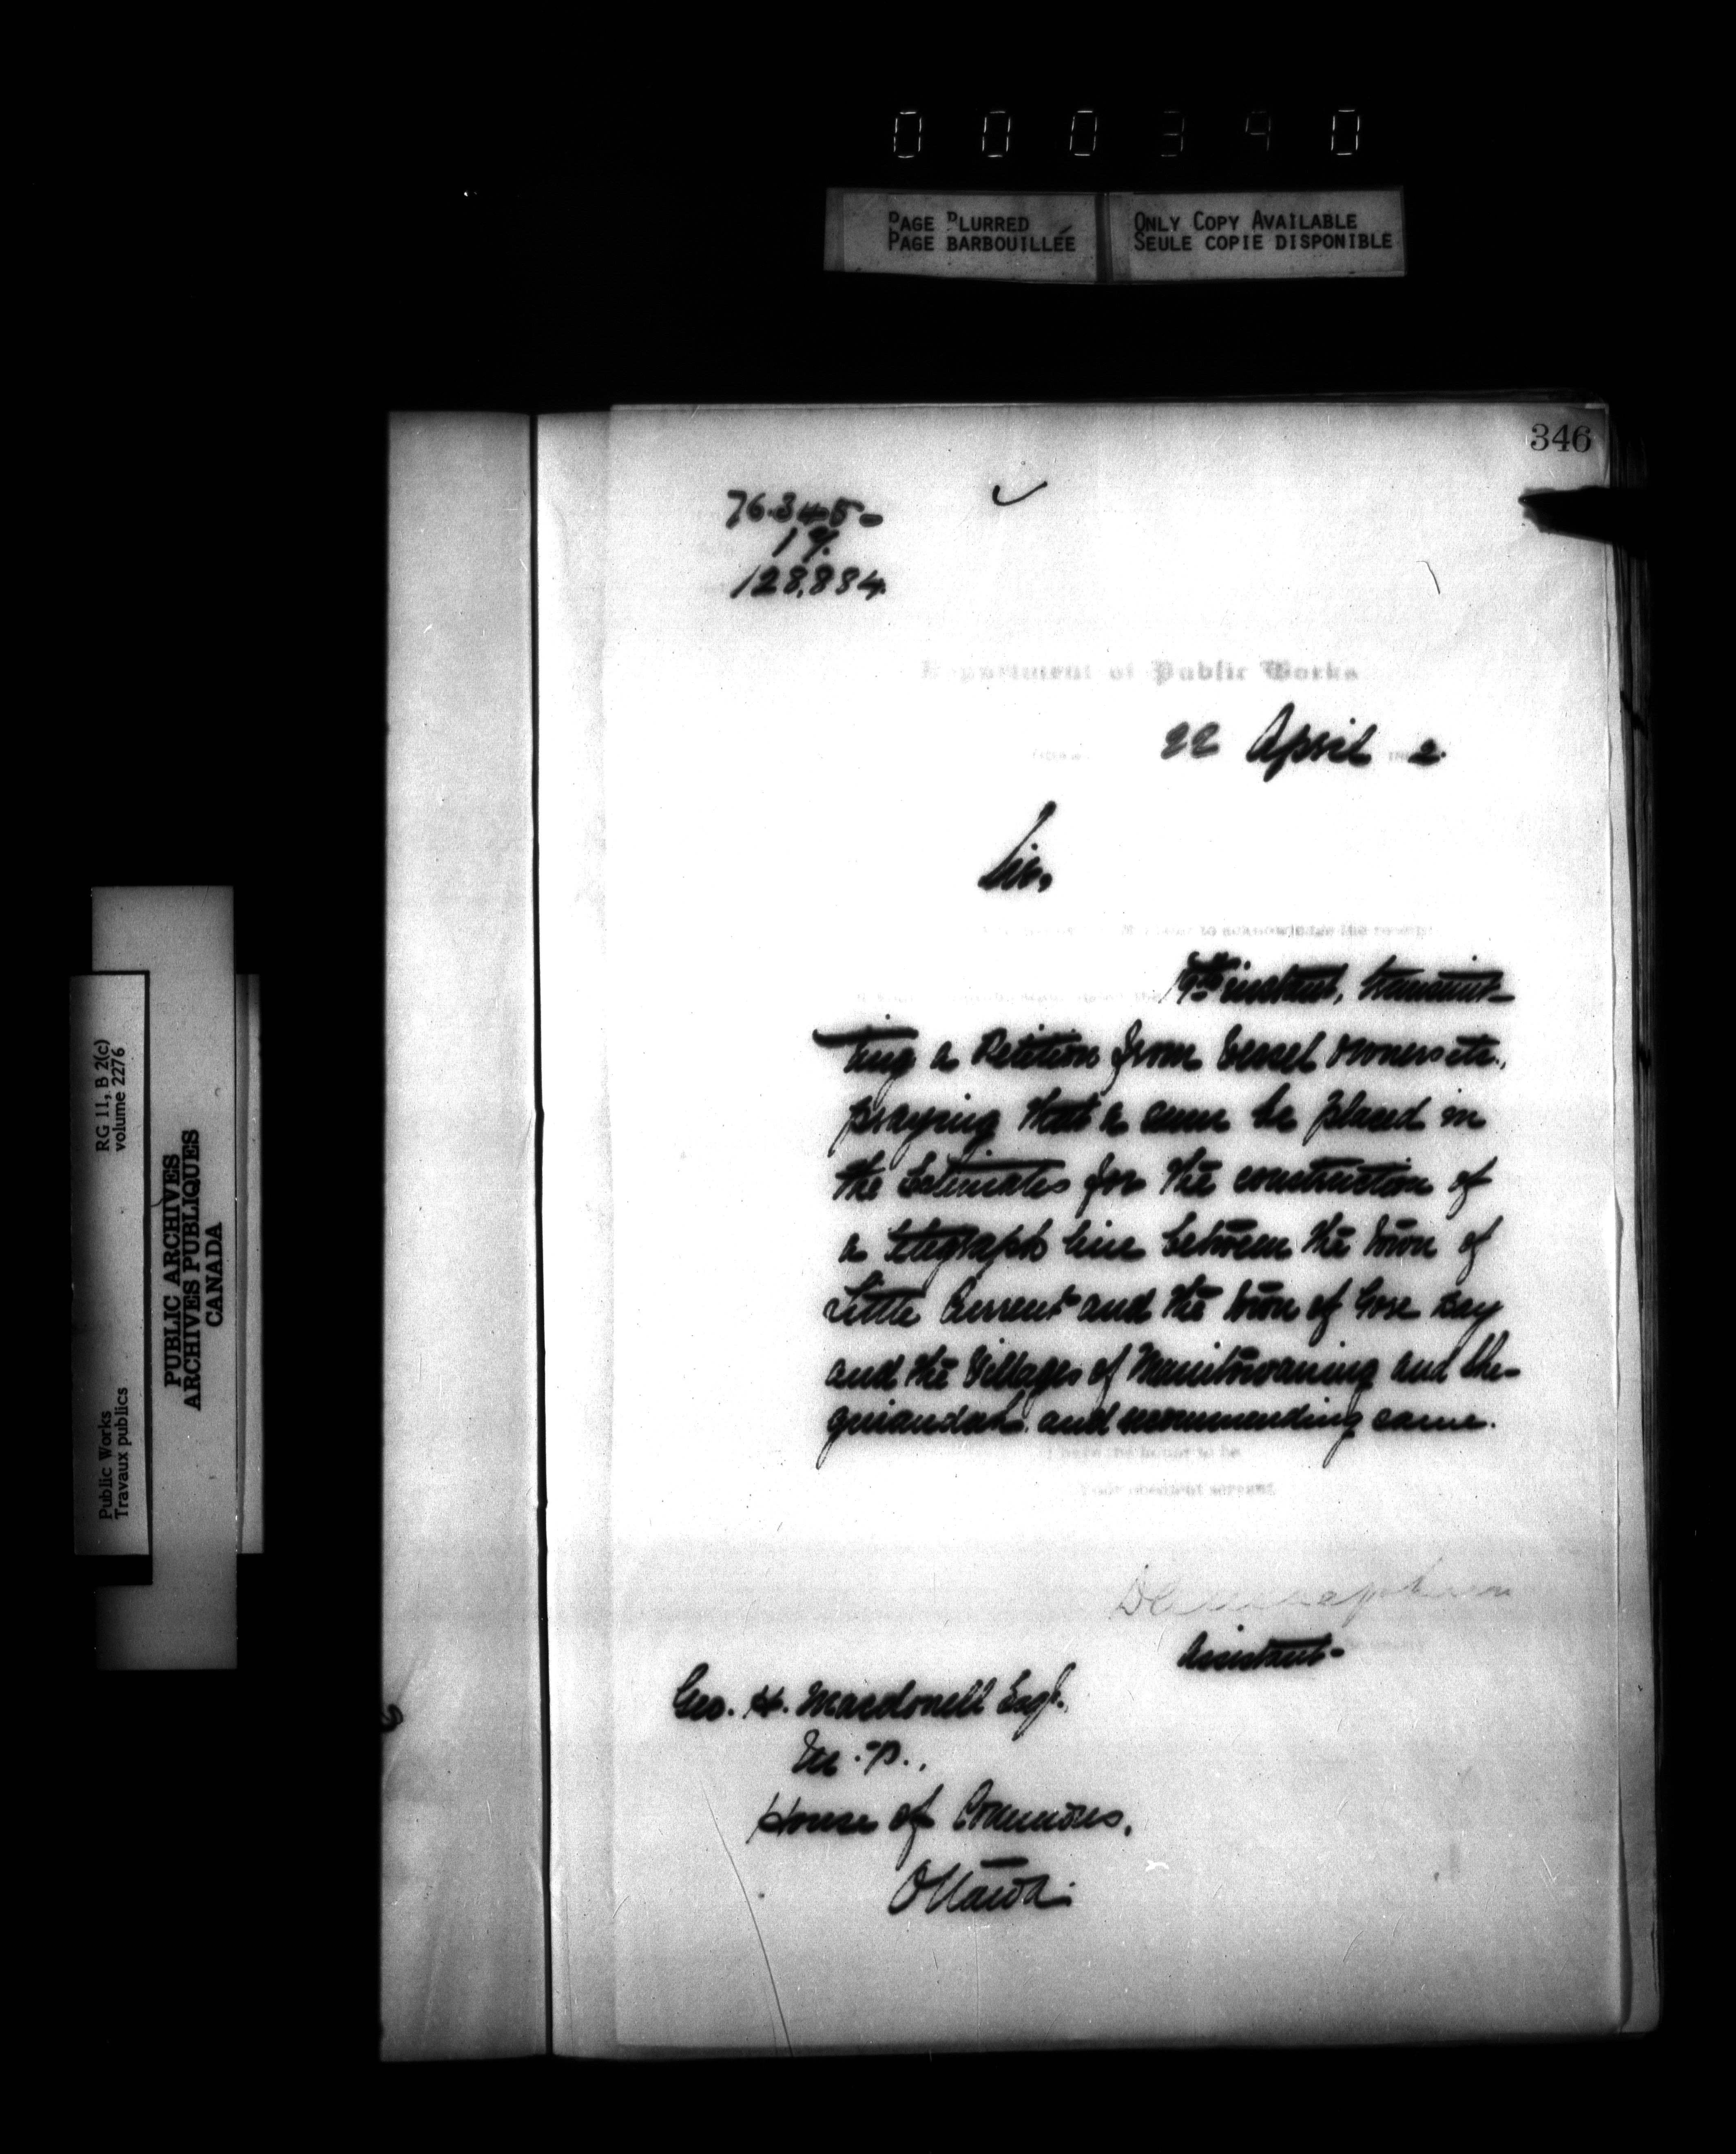 0 0 0 3 4 0
PAGE BLURRED
PAGE BARBOUILLÉE
ONLY COPY AVAILABLE
SEULE COPIE DISPONIBLE
346
76.345-
128,884.
Department of Public Works
22 April 2.
Sir,
to acknowledge the receipt
19th instant, transmit-
ting a Petition from Vessel owners etc.,
praying that a sum be placed in
the Estimates for the construction of
a telegraph line between the town of
Little Current and the town of Gore Bay
and the Villages of Manitowaning and She-
guiandah and recommending same.
I have the honor to be
Your obedient servant
Assistant-
Geo. H. Macdonell Esqr.
M.P.,
House of Commons,
Ottawa.
RG 11, B 2(c)
volume 2276
Public Works
Travaux publics
PUBLIC ARCHIVES
ARCHIVES PUBLIQUES
CANADA